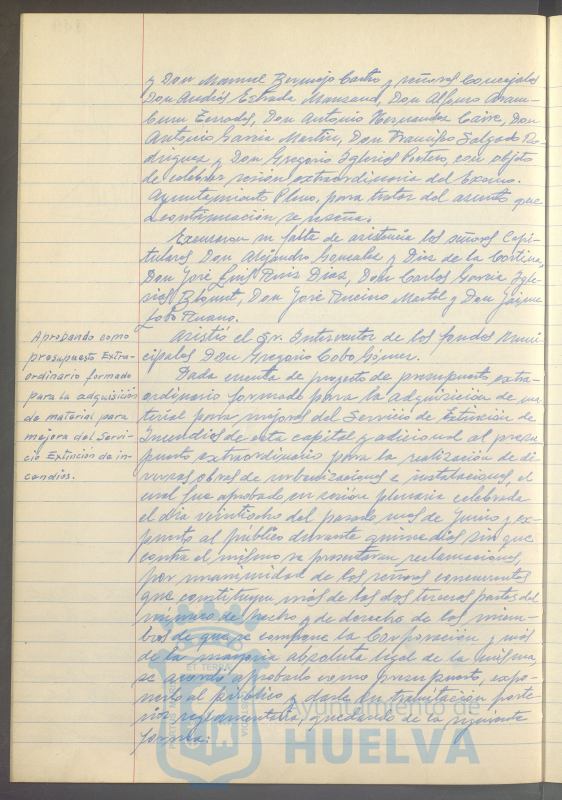 y Don Manuel Bermejo Castro y señores Concejales
Don Andrés Estrada Manzano, Don Alfonso Aram-
buru Terrades, Don Antonio Hernandez Caire, Don
Antonio Garcia Martín, Don Francisco Salgado Ro-
driguez y Don Gregorio Iglesias Portero, con objeto
de celebrar sesión extraordinaria del Excmo.
Ayuntamiento Pleno, para tratar del asunto que
a continuación se reseña.
Excusaron su falta de asistencia los señores Capi-
tulares Don Alejandro Gonzalez y Diaz de la Cortina,
Don José Luis Ruiz Diaz, Don Carlos Garcia Igle-
sias Blount, Don José Martel y Don Jaime
Lobo Ruano.
Asistió el Sr. Interventor de los fondos Muni-
cipales Don Gregorio Cobo Gómez.
Aprobando como
presupuesto Extra-
ordinario formado
para la adquisición
de material para
mejora del Servi-
cio Extinción de in-
cendios.
Dada cuenta de proyecto de presupuesto extra-
ordinario formado para la adquisición de ma-
terial para mejora del Servicio de Extinción de
Incendios de esta capital y adicional al presu-
puesto extraordinario para la realización de di-
versas obras de urbanizaciones e instalaciones, el
cual fue aprobado en sesión plenaria celebrada
el día veintiocho del pasado mes de Junio y ex-
puesto al público durante quince días sin que
contra el mismo se presentaran reclamaciones,
por unanimidad de los señores concurrentes
que constituyen más de las dos terceras partes del
número de hecho y de derecho de los miem-
bros de que se compone la Corporación y más
de la mayoría absoluta legal de la misma,
se acordó aprobarlo como presupuesto, expo-
nerlo al público y darle la tramitación poste-
rior reglamentaria, quedando de la siguiente
forma:
Ayuntamiento de
HUELVA